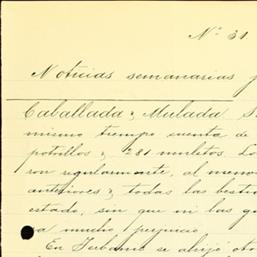 Nº 31
Noticias semanarias
Caballada y Mulada
mismo tiempo cuenta de
potrillos y 281 muletos. Lo
son regularmente, al menos
anteriores y todas las besti
estado, sin que ni las
mucho perjuicio
En Turbano se